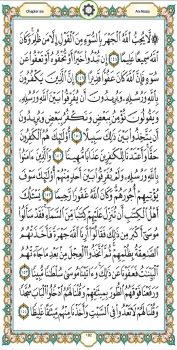 Chapter six An Nisaa
۞ لَّا يُحِبُّ ٱللَّهُ ٱلْجَهْرَ بِٱلسُّوٓءِ مِنَ ٱلْقَوْلِ إِلَّا مَن ظُلِمَ وَكَانَ
ٱللَّهُ سَمِيعًا عَلِيمًا ١٤٨ إِن تُبْدُوا۟ خَيْرًا أَوْ تُخْفُوهُ أَوْ تَعْفُوا۟ عَن
سُوٓءٍ فَإِنَّ ٱللَّهَ كَانَ عَفُوًّا قَدِيرًا ١٤٩ إِنَّ ٱلَّذِينَ يَكْفُرُونَ
بِٱللَّهِ وَرُسُلِهِۦ وَيُرِيدُونَ أَن يُفَرِّقُوا۟ بَيْنَ ٱللَّهِ وَرُسُلِهِۦ
وَيَقُولُونَ نُؤْمِنُ بِبَعْضٍ وَنَكْفُرُ بِبَعْضٍ وَيُرِيدُونَ
أَن يَتَّخِذُوا۟ بَيْنَ ذَٰلِكَ سَبِيلًا ١٥٠ أُو۟لَٰٓئِكَ هُمُ ٱلْكَٰفِرُونَ
حَقًّا وَأَعْتَدْنَا لِلْكَٰفِرِينَ عَذَابًا مُّهِينًا ١٥١ وَٱلَّذِينَ ءَامَنُوا۟
بِٱللَّهِ وَرُسُلِهِۦ وَلَمْ يُفَرِّقُوا۟ بَيْنَ أَحَدٍ مِّنْهُمْ أُو۟لَٰٓئِكَ سَوْفَ
يُؤْتِيهِمْ أُجُورَهُمْ وَكَانَ ٱللَّهُ غَفُورًا رَّحِيمًا ١٥٢ يَسْـَٔلُكَ
أَهْلُ ٱلْكِتَٰبِ أَن تُنَزِّلَ عَلَيْهِمْ كِتَٰبًا مِّنَ ٱلسَّمَآءِ فَقَدْ سَأَلُوا۟
مُوسَىٰٓ أَكْبَرَ مِن ذَٰلِكَ فَقَالُوٓا۟ أَرِنَا ٱللَّهَ جَهْرَةً فَأَخَذَتْهُمُ
ٱلصَّٰعِقَةُ بِظُلْمِهِمْ ثُمَّ ٱتَّخَذُوا۟ ٱلْعِجْلَ مِنۢ بَعْدِ مَا جَآءَتْهُمُ
ٱلْبَيِّنَٰتُ فَعَفَوْنَا عَن ذَٰلِكَ وَءَاتَيْنَا مُوسَىٰ سُلْطَٰنًا مُّبِينًا ١٥٣
وَرَفَعْنَا فَوْقَهُمُ ٱلطُّورَ بِمِيثَٰقِهِمْ وَقُلْنَا لَهُمُ ٱدْخُلُوا۟ ٱلْبَابَ سُجَّدًا
وَقُلْنَا لَهُمْ لَا تَعْدُوا۟ فِى ٱلسَّبْتِ وَأَخَذْنَا مِنْهُم مِّيثَٰقًا غَلِيظًا ١٥٤
102